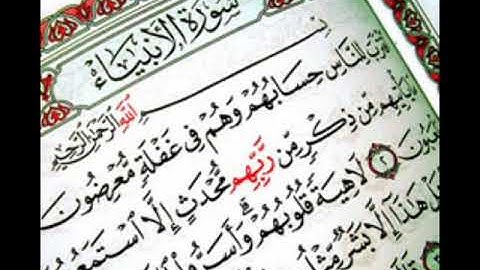 سُورَةُ الْأَنبِيَاءِ
بِسْمِ اللَّهِ الرَّحْمَٰنِ الرَّحِيمِ
لِلنَّاسِ حِسَابُهُمْ وَهُمْ فِي غَفْلَةٍ مُّعْرِضُونَ
يَأْتِيهِم مِّن ذِكْرٍ مِّن رَّبِّهِم مُّحْدَثٍ إِلَّا اسْتَمَعُوهُ
٢ لَاهِيَةً قُلُوبُهُمْ وَأَسَرُّوا
هَلْ هَٰذَا إِلَّا بَشَرٌ مِّثْلُ